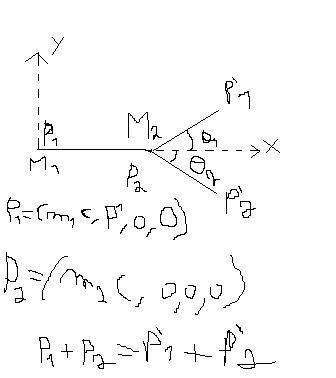 y
P₁
M₂
P'₁
θ₁
x
M₁
P₂
θ₂
P'₂
P₁=(m₁c,P,0,0)
P₂=(m₂c,0,0,0)
P₁+P₂=P'₁+P'₂